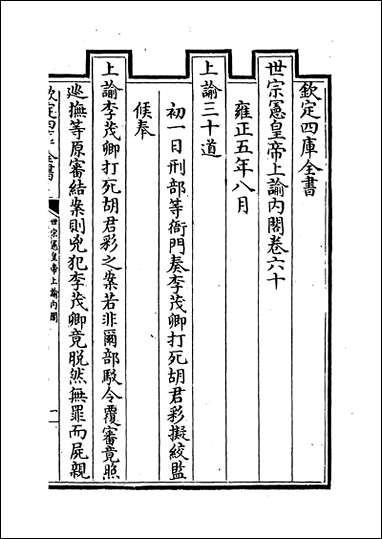 欽定四庫全書
世宗憲皇帝上諭内閣卷六十
雍正五年八月
上諭三十道
初一日刑部等衙門奏李茂卿打死胡君彩擬絞監
候奉
上諭李茂卿打死胡君彩之案若非爾部駁令覆審竟照
巡撫等原審結案則兇犯李茂卿竟脱然無罪而屍親
欽定四庫全書
世宗憲皇帝上諭内閣
一